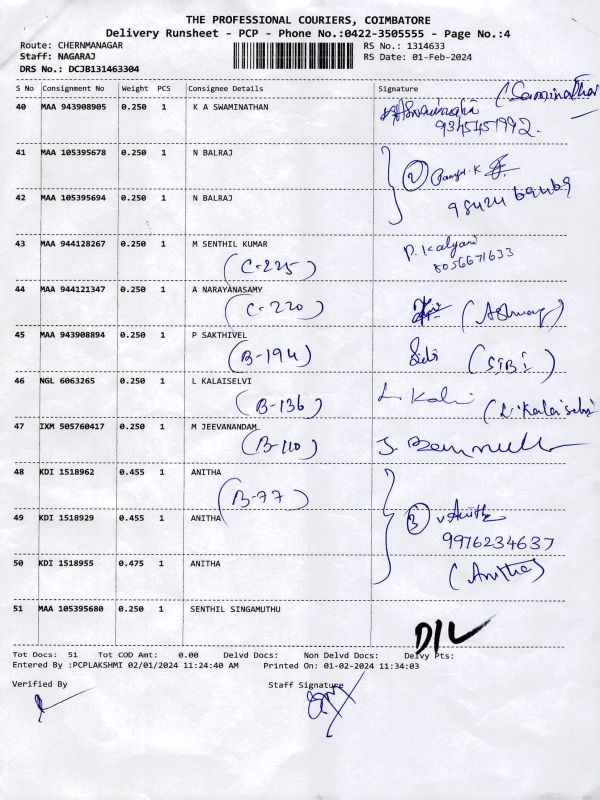 THE PROFESSIONAL COURIERS, COIMBATORE
Delivery Runsheet - PCP - Phone No.:0422-3505555 - Page No.:4
Route: CHERNMANAGAR RS No.: 1314633
Staff: NAGARAJ RS Date: 01-Feb-2024
DRS No.: DCJB131463304
S No Consignment No Weight PCS Consignee Details Signature
40 MAA 943908905 0.250 1 K A SWAMINATHAN (Saminathan
9345451992.
41 MAA 105395678 0.250 1 N BALRAJ 2
42 MAA 105395694 0.250 1 N BALRAJ 98424 69469
43 MAA 944128267 0.250 1 M SENTHIL KUMAR P. Kalyani
(C-225) 8056671633
44 MAA 944121347 0.250 1 A NARAYANASAMY
(C-220)
45 MAA 943908894 0.250 1 P SAKTHIVEL
(B-194) Sibi (SIBI)
46 NGL 6063265 0.250 1 L KALAISELVI
(B-136) L. Kalai (L. Kalaiselvi
47 IXM 505760417 0.250 1 M JEEVANANDAM
(B-110)
48 KDI 1518962 0.455 1 ANITHA
(B-77)
49 KDI 1518929 0.455 1 ANITHA 3 V. Anitha
9976234637
50 KDI 1518955 0.475 1 ANITHA (Anitha)
51 MAA 105395680 0.250 1 SENTHIL SINGAMUTHU
D/L
Tot Docs: 51 Tot COD Amt: 0.00 Delvd Docs: Non Delvd Docs: Delvy Pts:
Entered By :PCPLAKSHMI 02/01/2024 11:24:40 AM Printed On: 01-02-2024 11:34:03
Verified By Staff Signature